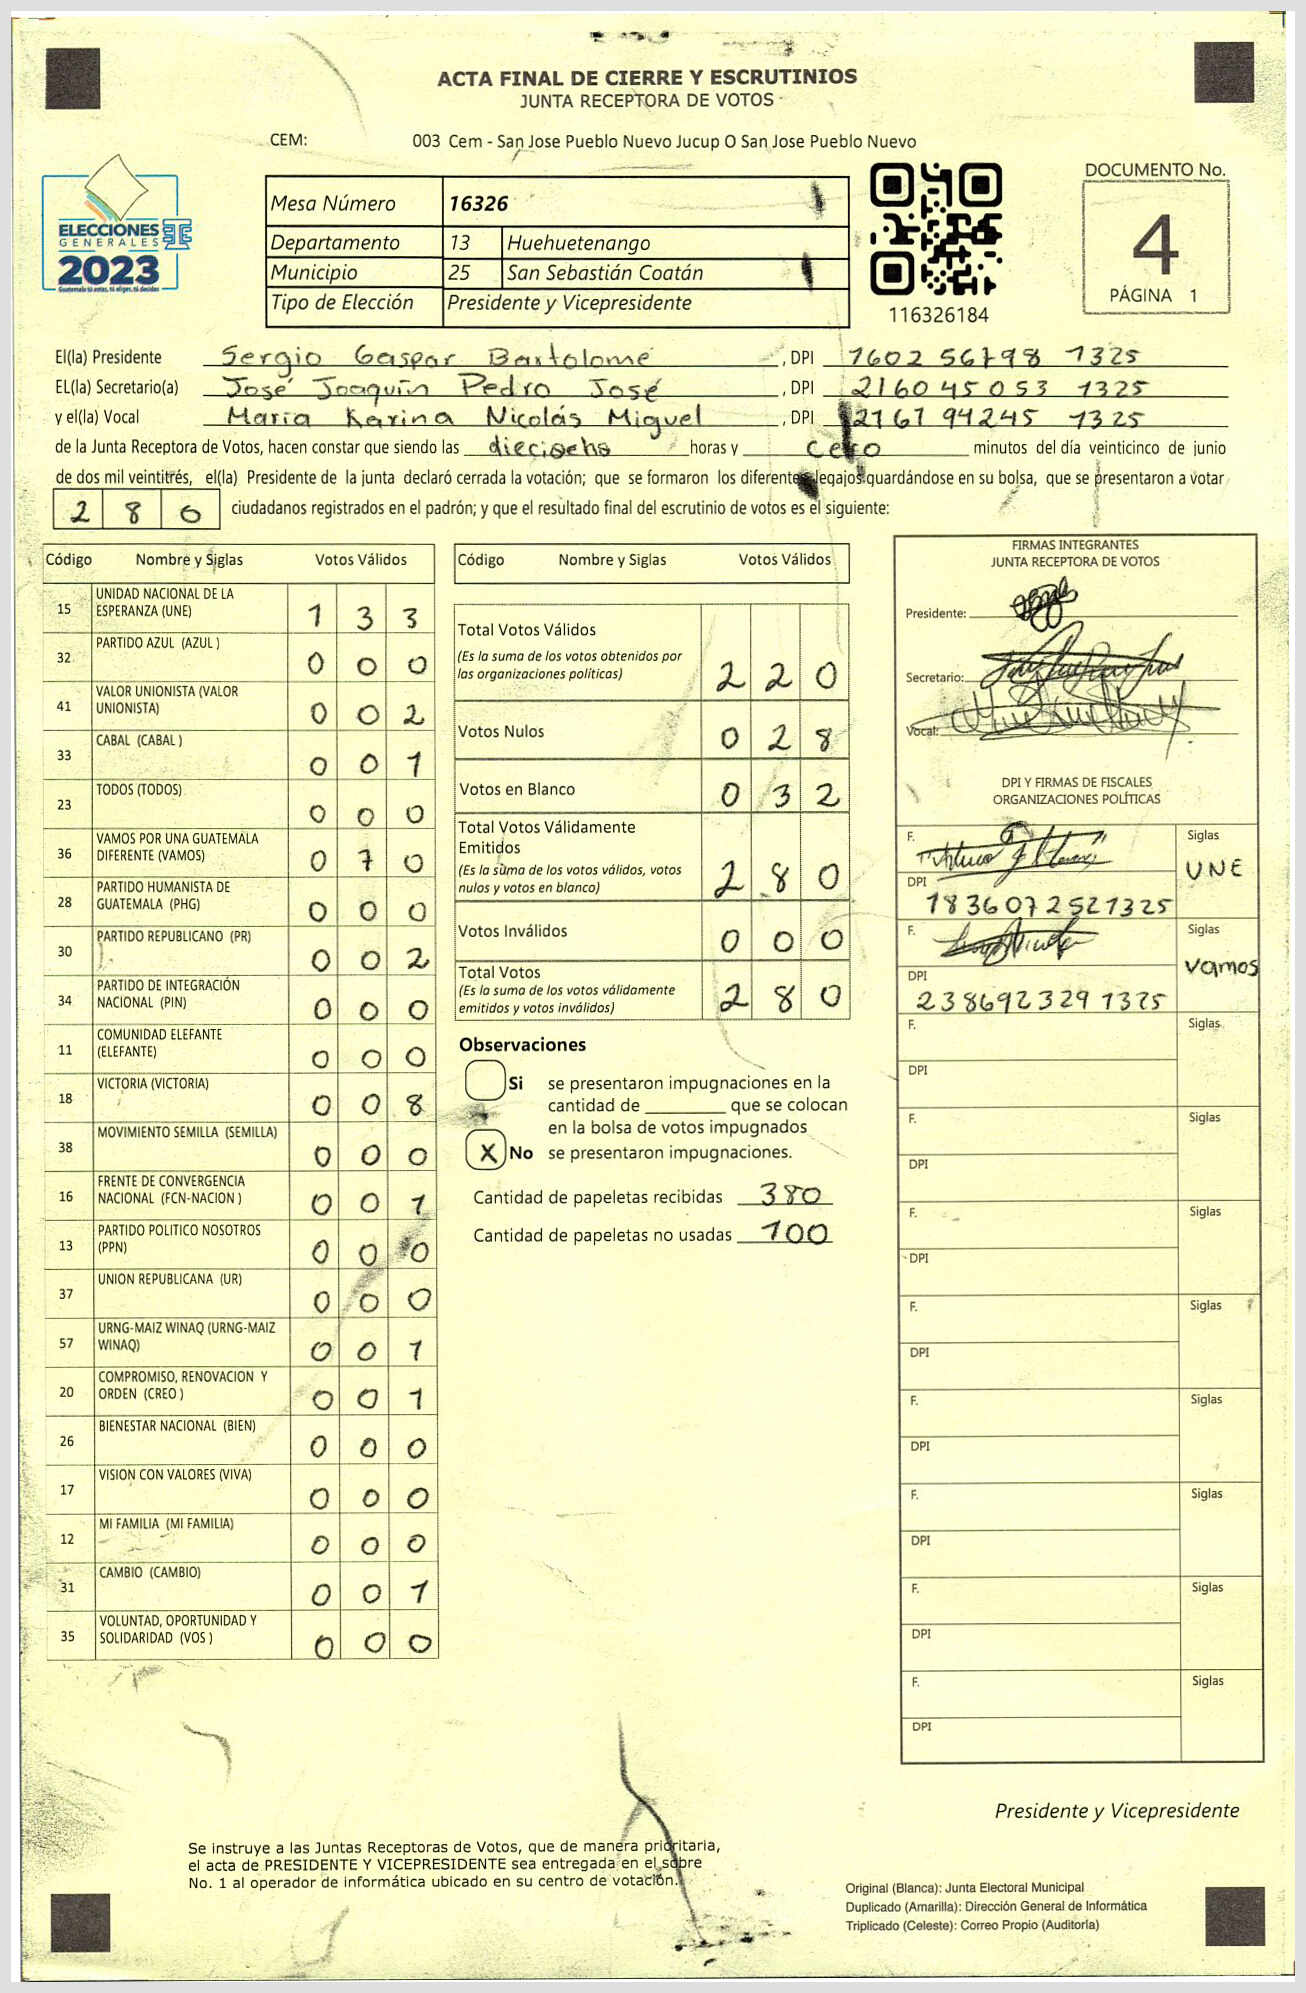 ACTA FINAL DE CIERRE Y ESCRUTINIOS
JUNTA RECEPTORA DE VOTOS
CEM: 003 Cem - San Jose Pueblo Nuevo Jucup O San Jose Pueblo Nuevo
ELECCIONES
GENERALES
2023
Guatemala tú votas, tú eliges, tú decides
Mesa Número 16326
Departamento 13 Huehuetenango
Municipio 25 San Sebastián Coatán
Tipo de Elección Presidente y Vicepresidente
116326184
DOCUMENTO No.
4
PÁGINA 1
El(la) Presidente Sergio Gaspar Bartolomé, DPI 1602 56798 1325
EL(la) Secretario(a) José Joaquín Pedro José, DPI 2160 45053 1325
y el(la) Vocal María Karina Nicolás Miguel, DPI 2167 94245 1325
de la Junta Receptora de Votos, hacen constar que siendo las dieciocho horas y cero minutos del día veinticinco de junio
de dos mil veintitrés, el(la) Presidente de la junta declaró cerrada la votación; que se formaron los diferentes legajos guardándose en su bolsa, que se presentaron a votar
2 8 0 ciudadanos registrados en el padrón; y que el resultado final del escrutinio de votos es el siguiente:
Código Nombre y Siglas Votos Válidos
15 UNIDAD NACIONAL DE LA ESPERANZA (UNE) 1 3 3
32 PARTIDO AZUL (AZUL ) 0 0 0
41 VALOR UNIONISTA (VALOR UNIONISTA) 0 0 2
33 CABAL (CABAL ) 0 0 1
23 TODOS (TODOS) 0 0 0
36 VAMOS POR UNA GUATEMALA DIFERENTE (VAMOS) 0 7 0
28 PARTIDO HUMANISTA DE GUATEMALA (PHG) 0 0 0
30 PARTIDO REPUBLICANO (PR) 0 0 2
34 PARTIDO DE INTEGRACIÓN NACIONAL (PIN) 0 0 0
11 COMUNIDAD ELEFANTE (ELEFANTE) 0 0 0
18 VICTORIA (VICTORIA) 0 0 8
38 MOVIMIENTO SEMILLA (SEMILLA) 0 0 0
16 FRENTE DE CONVERGENCIA NACIONAL (FCN-NACION ) 0 0 1
13 PARTIDO POLITICO NOSOTROS (PPN) 0 0 0
37 UNION REPUBLICANA (UR) 0 0 0
57 URNG-MAIZ WINAQ (URNG-MAIZ WINAQ) 0 0 1
20 COMPROMISO, RENOVACION Y ORDEN (CREO ) 0 0 1
26 BIENESTAR NACIONAL (BIEN) 0 0 0
17 VISION CON VALORES (VIVA) 0 0 0
12 MI FAMILIA (MI FAMILIA) 0 0 0
31 CAMBIO (CAMBIO) 0 0 1
35 VOLUNTAD, OPORTUNIDAD Y SOLIDARIDAD (VOS ) 0 0 0
Código Nombre y Siglas Votos Válidos
Total Votos Válidos
(Es la suma de los votos obtenidos por
las organizaciones políticas) 2 2 0
Votos Nulos 0 2 8
Votos en Blanco 0 3 2
Total Votos Válidamente
Emitidos
(Es la suma de los votos válidos, votos
nulos y votos en blanco) 2 8 0
Votos Inválidos 0 0 0
Total Votos
(Es la suma de los votos válidamente
emitidos y votos inválidos) 2 8 0
Observaciones
Si se presentaron impugnaciones en la
cantidad de ________ que se colocan
en la bolsa de votos impugnados
X No se presentaron impugnaciones.
Cantidad de papeletas recibidas 380
Cantidad de papeletas no usadas 100
FIRMAS INTEGRANTES
JUNTA RECEPTORA DE VOTOS
Presidente:
Secretario:
Vocal:
DPI Y FIRMAS DE FISCALES
ORGANIZACIONES POLÍTICAS
F. Siglas
UNE
DPI
1836072521325
F. Siglas
Vamos
DPI
238692329 1325
F. Siglas
DPI
F. Siglas
DPI
F. Siglas
DPI
F. Siglas
DPI
F. Siglas
DPI
F. Siglas
DPI
F. Siglas
DPI
F. Siglas
DPI
Presidente y Vicepresidente
Se instruye a las Juntas Receptoras de Votos, que de manera prioritaria,
el acta de PRESIDENTE Y VICEPRESIDENTE sea entregada en el sobre
No. 1 al operador de informática ubicado en su centro de votación.
Original (Blanca): Junta Electoral Municipal
Duplicado (Amarilla): Dirección General de Informática
Triplicado (Celeste): Correo Propio (Auditoría)